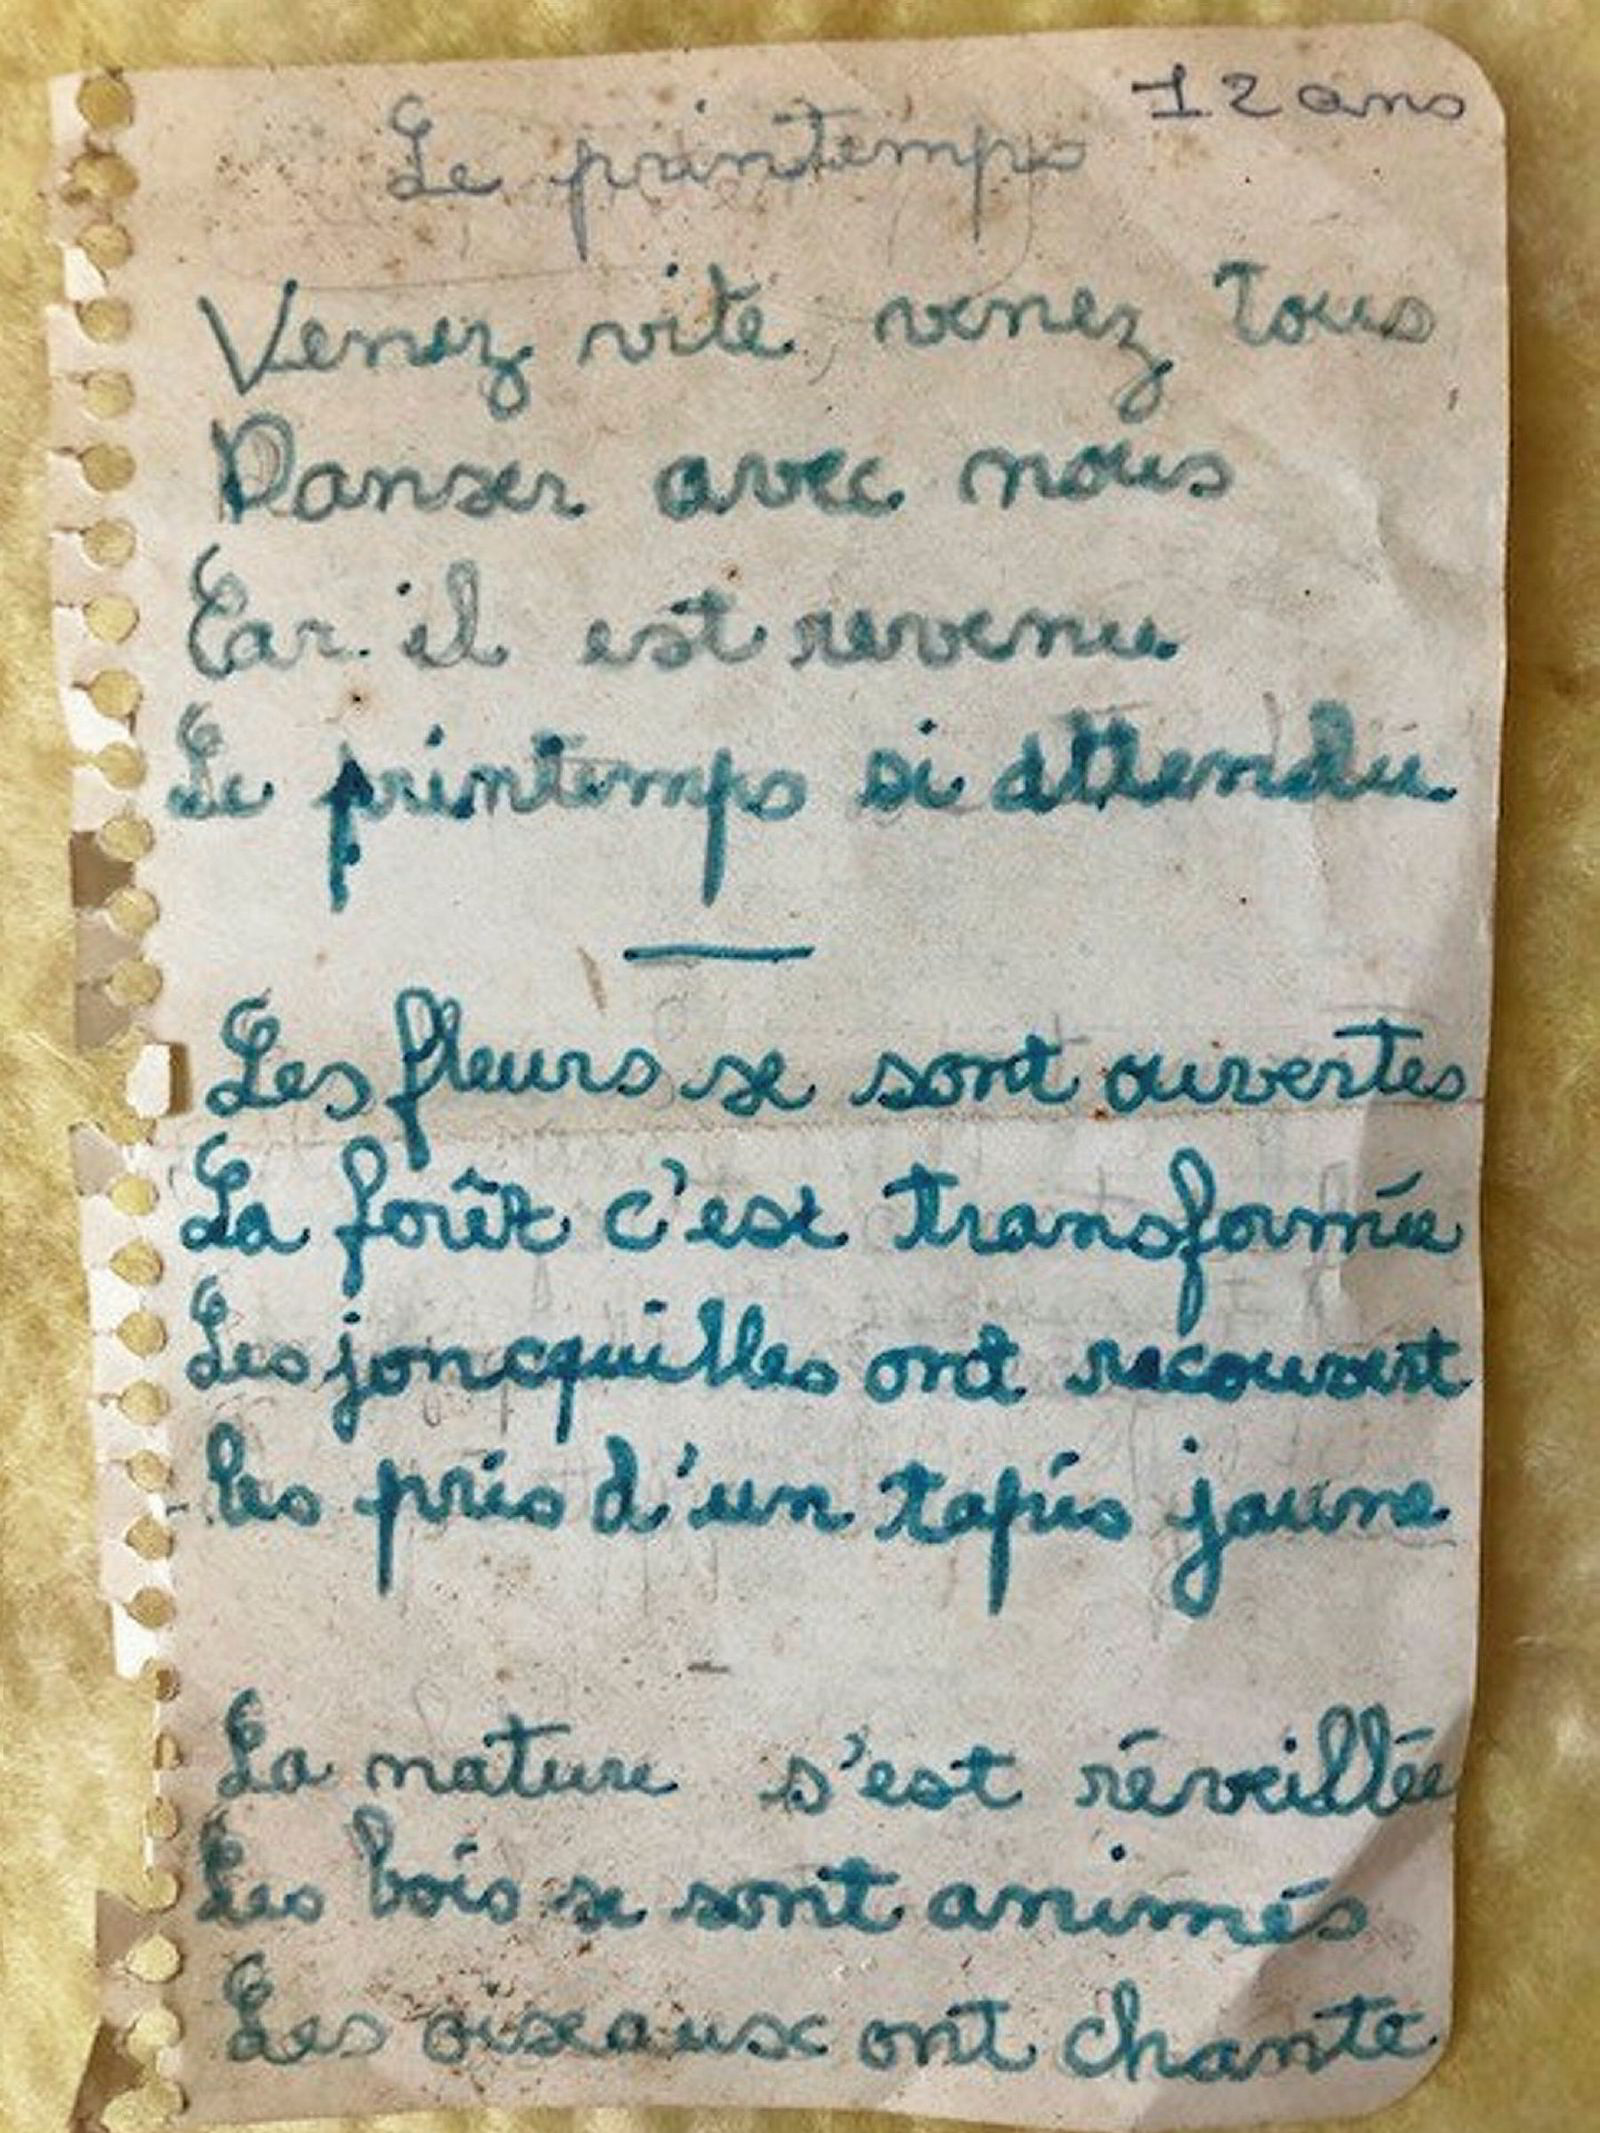 12 ans
Le printemps
Venez vite, venez tous
Danser avec nous
Car il est revenu
Le printemps si attendu
Les fleurs se sont ouvertes
La forêt c'est transformée
Les joncquilles ont recouvert
les prés d'un tapis jaune
La nature s'est réveillée
Les bois se sont animés
Les oiseaux ont chanté